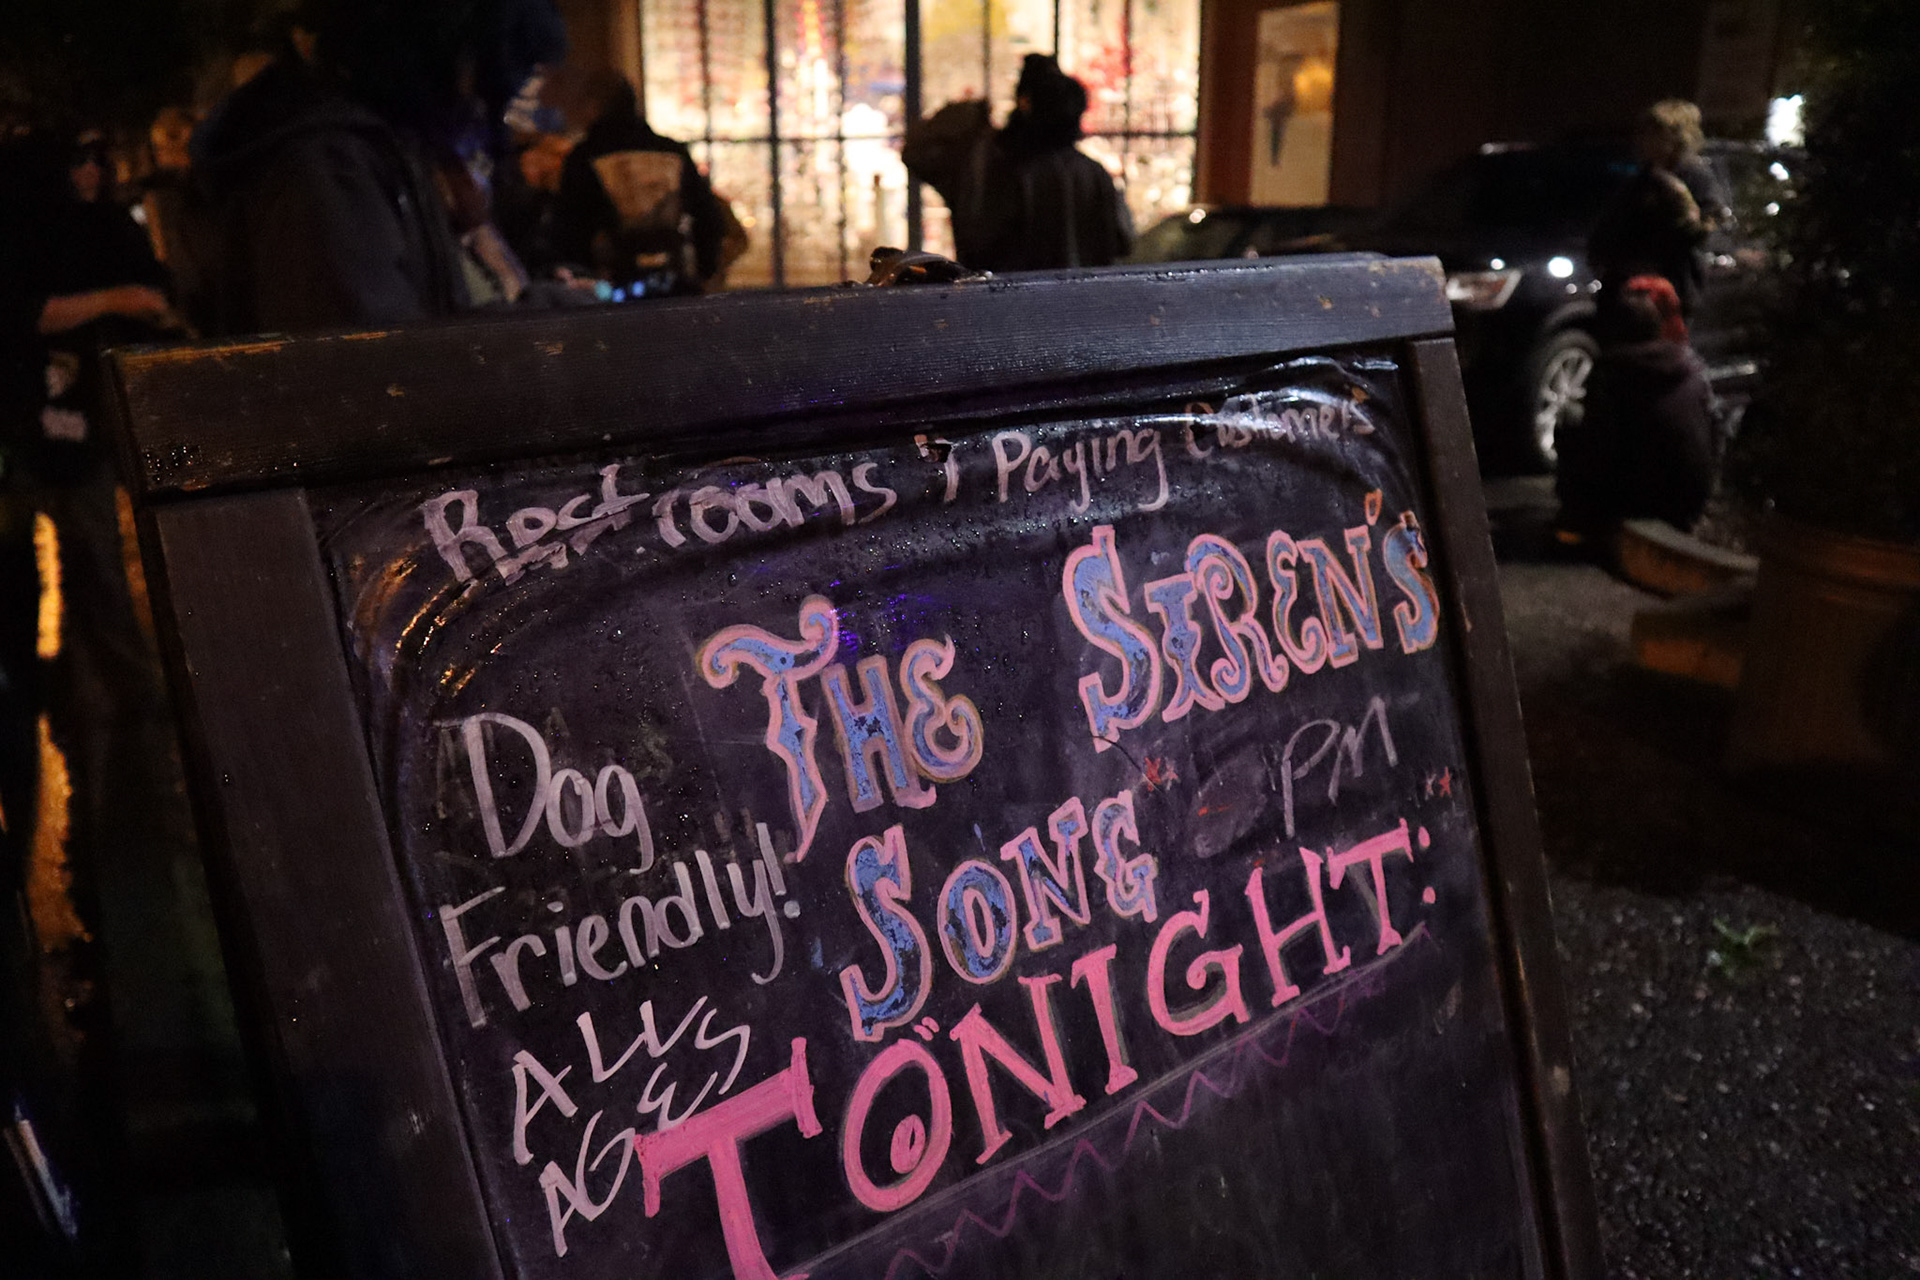 Restrooms 4 Paying Customers
THE SIREN'S
SONG
PM
Dog
Friendly!
ALL
AGES
TONIGHT: